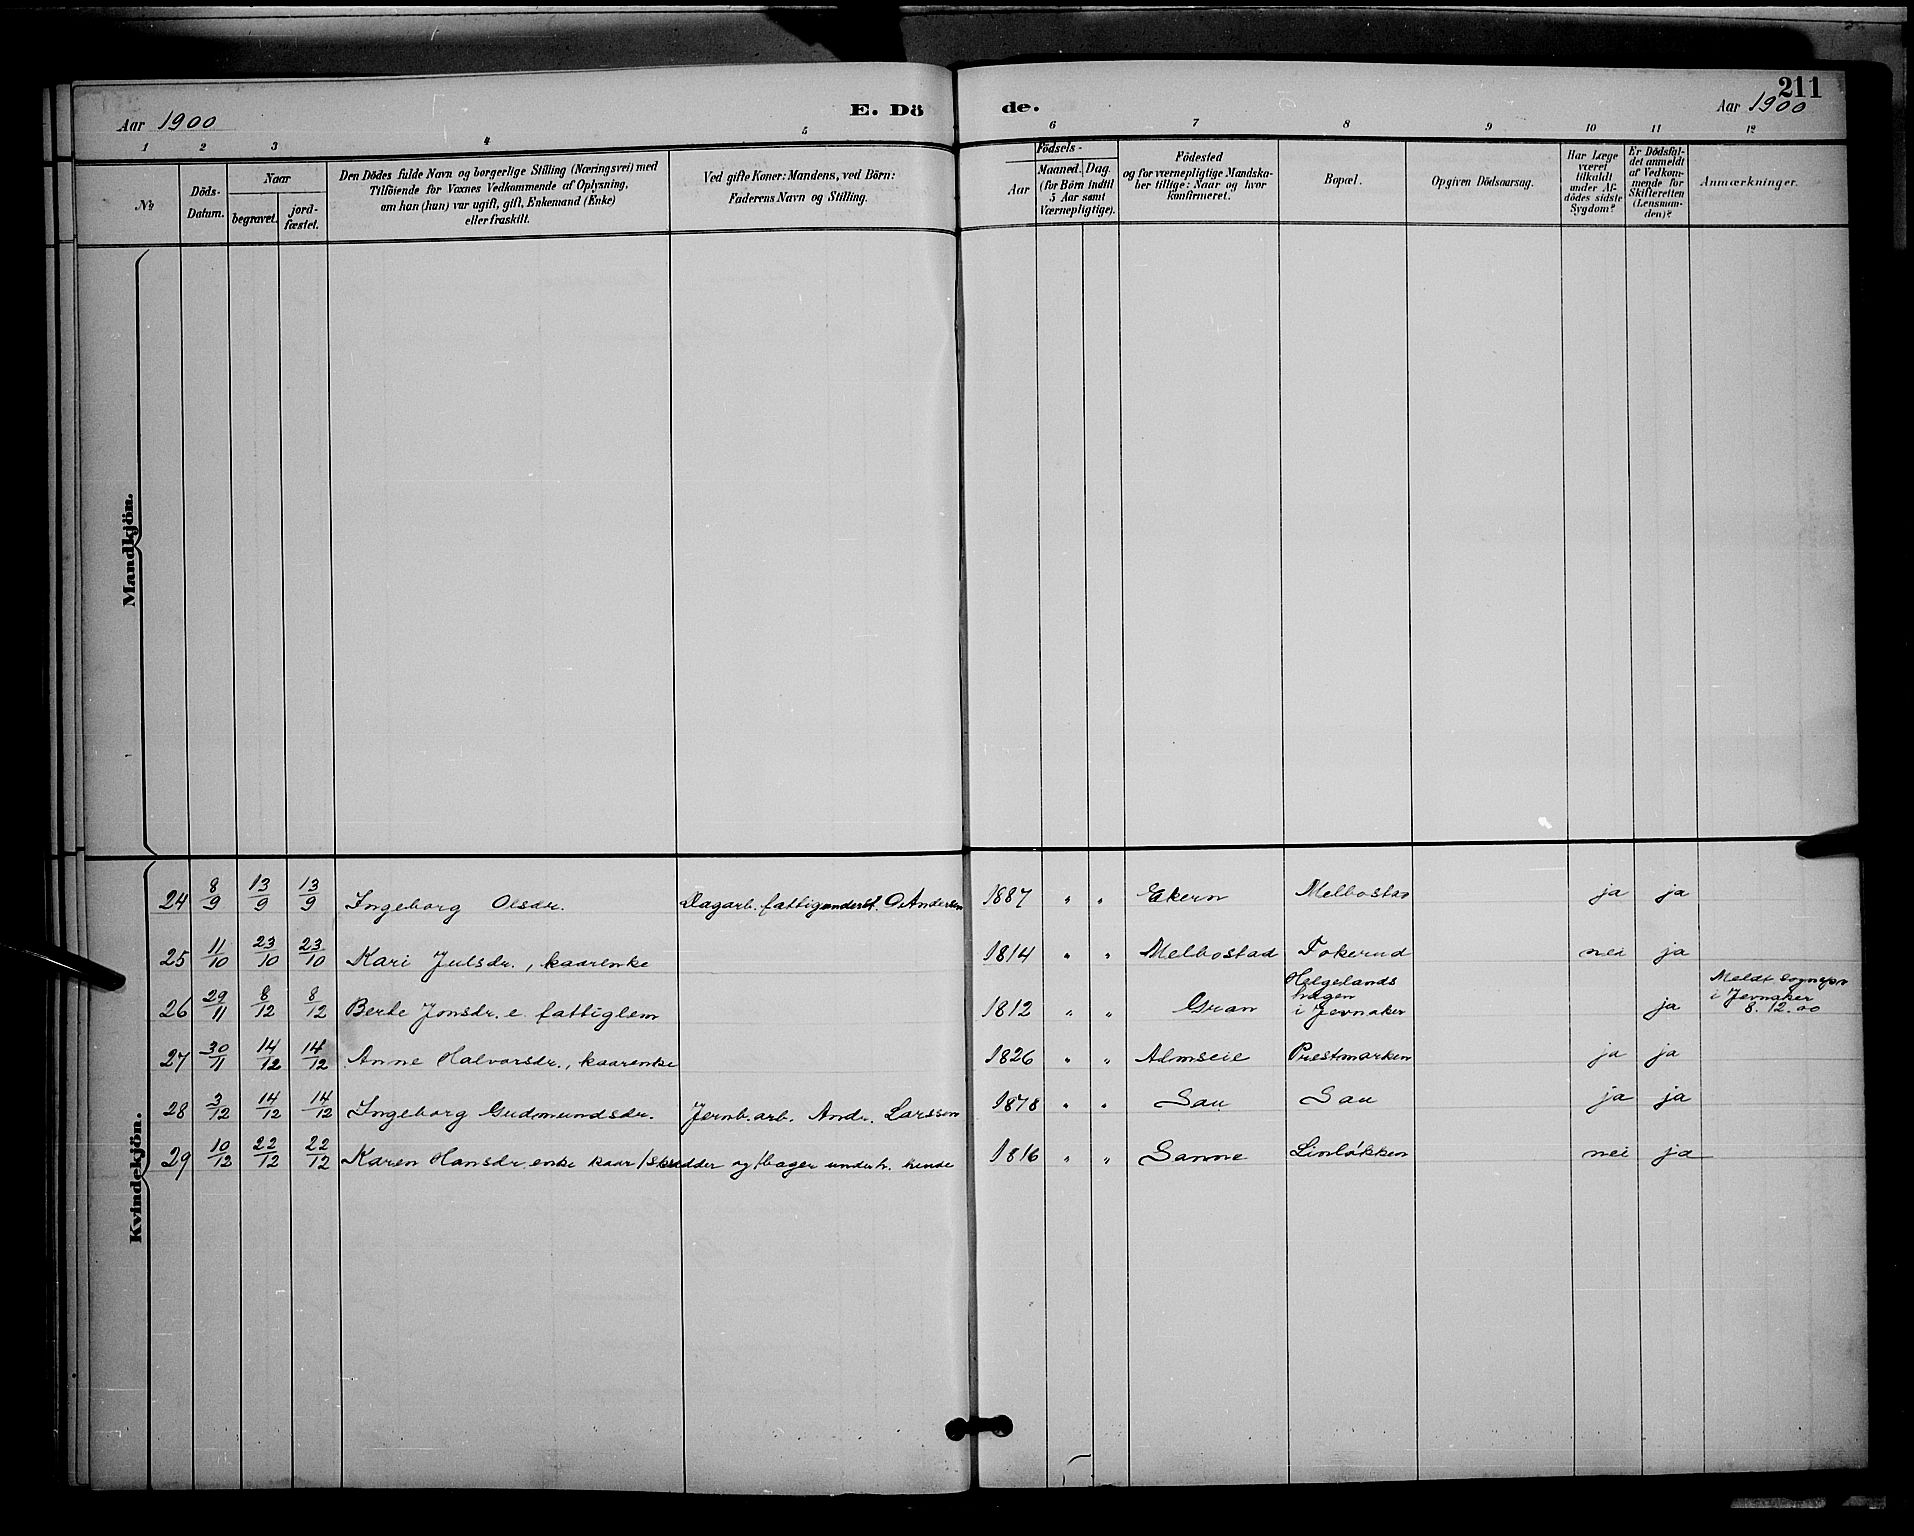 211
Aar 1900 E. Dö de. Aar 1900
1 2 3 4 5 6 7 8 9 10 11 12
№
Döds-
Datum.
Naar
begravet.
jord-
fæstet.
Den Dödes fulde Navn og borgerlige Stilling (Næringsvei) med
Tilföiende for Voxnes Vedkommende af Oplysning,
om han (hun) var ugift, gift, Enkemand (Enke)
eller fraskilt.
Ved gifte Koner: Mandens, ved Börn:
Faderens Navn og Stilling.
Födsels-
Aar
Maaned. Dag.
(for Börn indtil
5 Aar samt
Værnepligtige).
Födested
og for værnepligtige Mandska-
ber tillige: Naar og hvor
konfirmeret.
Bopæl.
Opgiven Dödsaarsag.
Har Læge
været
tilkaldt
under Af-
dödes sidste
Sygdom?
Er Dödsfal-
det anmeldt
af Vedkom-
mende for
Skifteretten
(Lensman-
den)?
Anmærkninger.
Mandkjön.
Kvindekjön.
24 8/9 13/9 13/9 Ingeborg Olsdr. Dagarb. fattigunderst. O. Andersen 1887 " " Ekern Melbostad ja ja
25 11/10 23/10 23/10 Kari Julsdr., kaarenke 1814 " " Melbostad Fokerud nei ja
26 29/11 8/12 8/12 Berte Jonsdr. e. fattiglem 1812 " " Gran Helgelands
hagen
i Jevnaker ja Meldt sognepr
i Jevnaker
8.12.00
27 30/11 14/12 14/12 Anne Halvorsdr., kaarenke 1826 " " Almseie Prestmarken ja ja
28 3/12 14/12 14/12 Ingeborg Gudmundsdr. Jernb.arb. Andr. Larssen 1878 " " Sau Sau ja ja
29 10/12 22/12 22/12 Karen Hansdr enke kaar / skrædder og underh. hende 1816 " " Sanne Linløkken nei ja